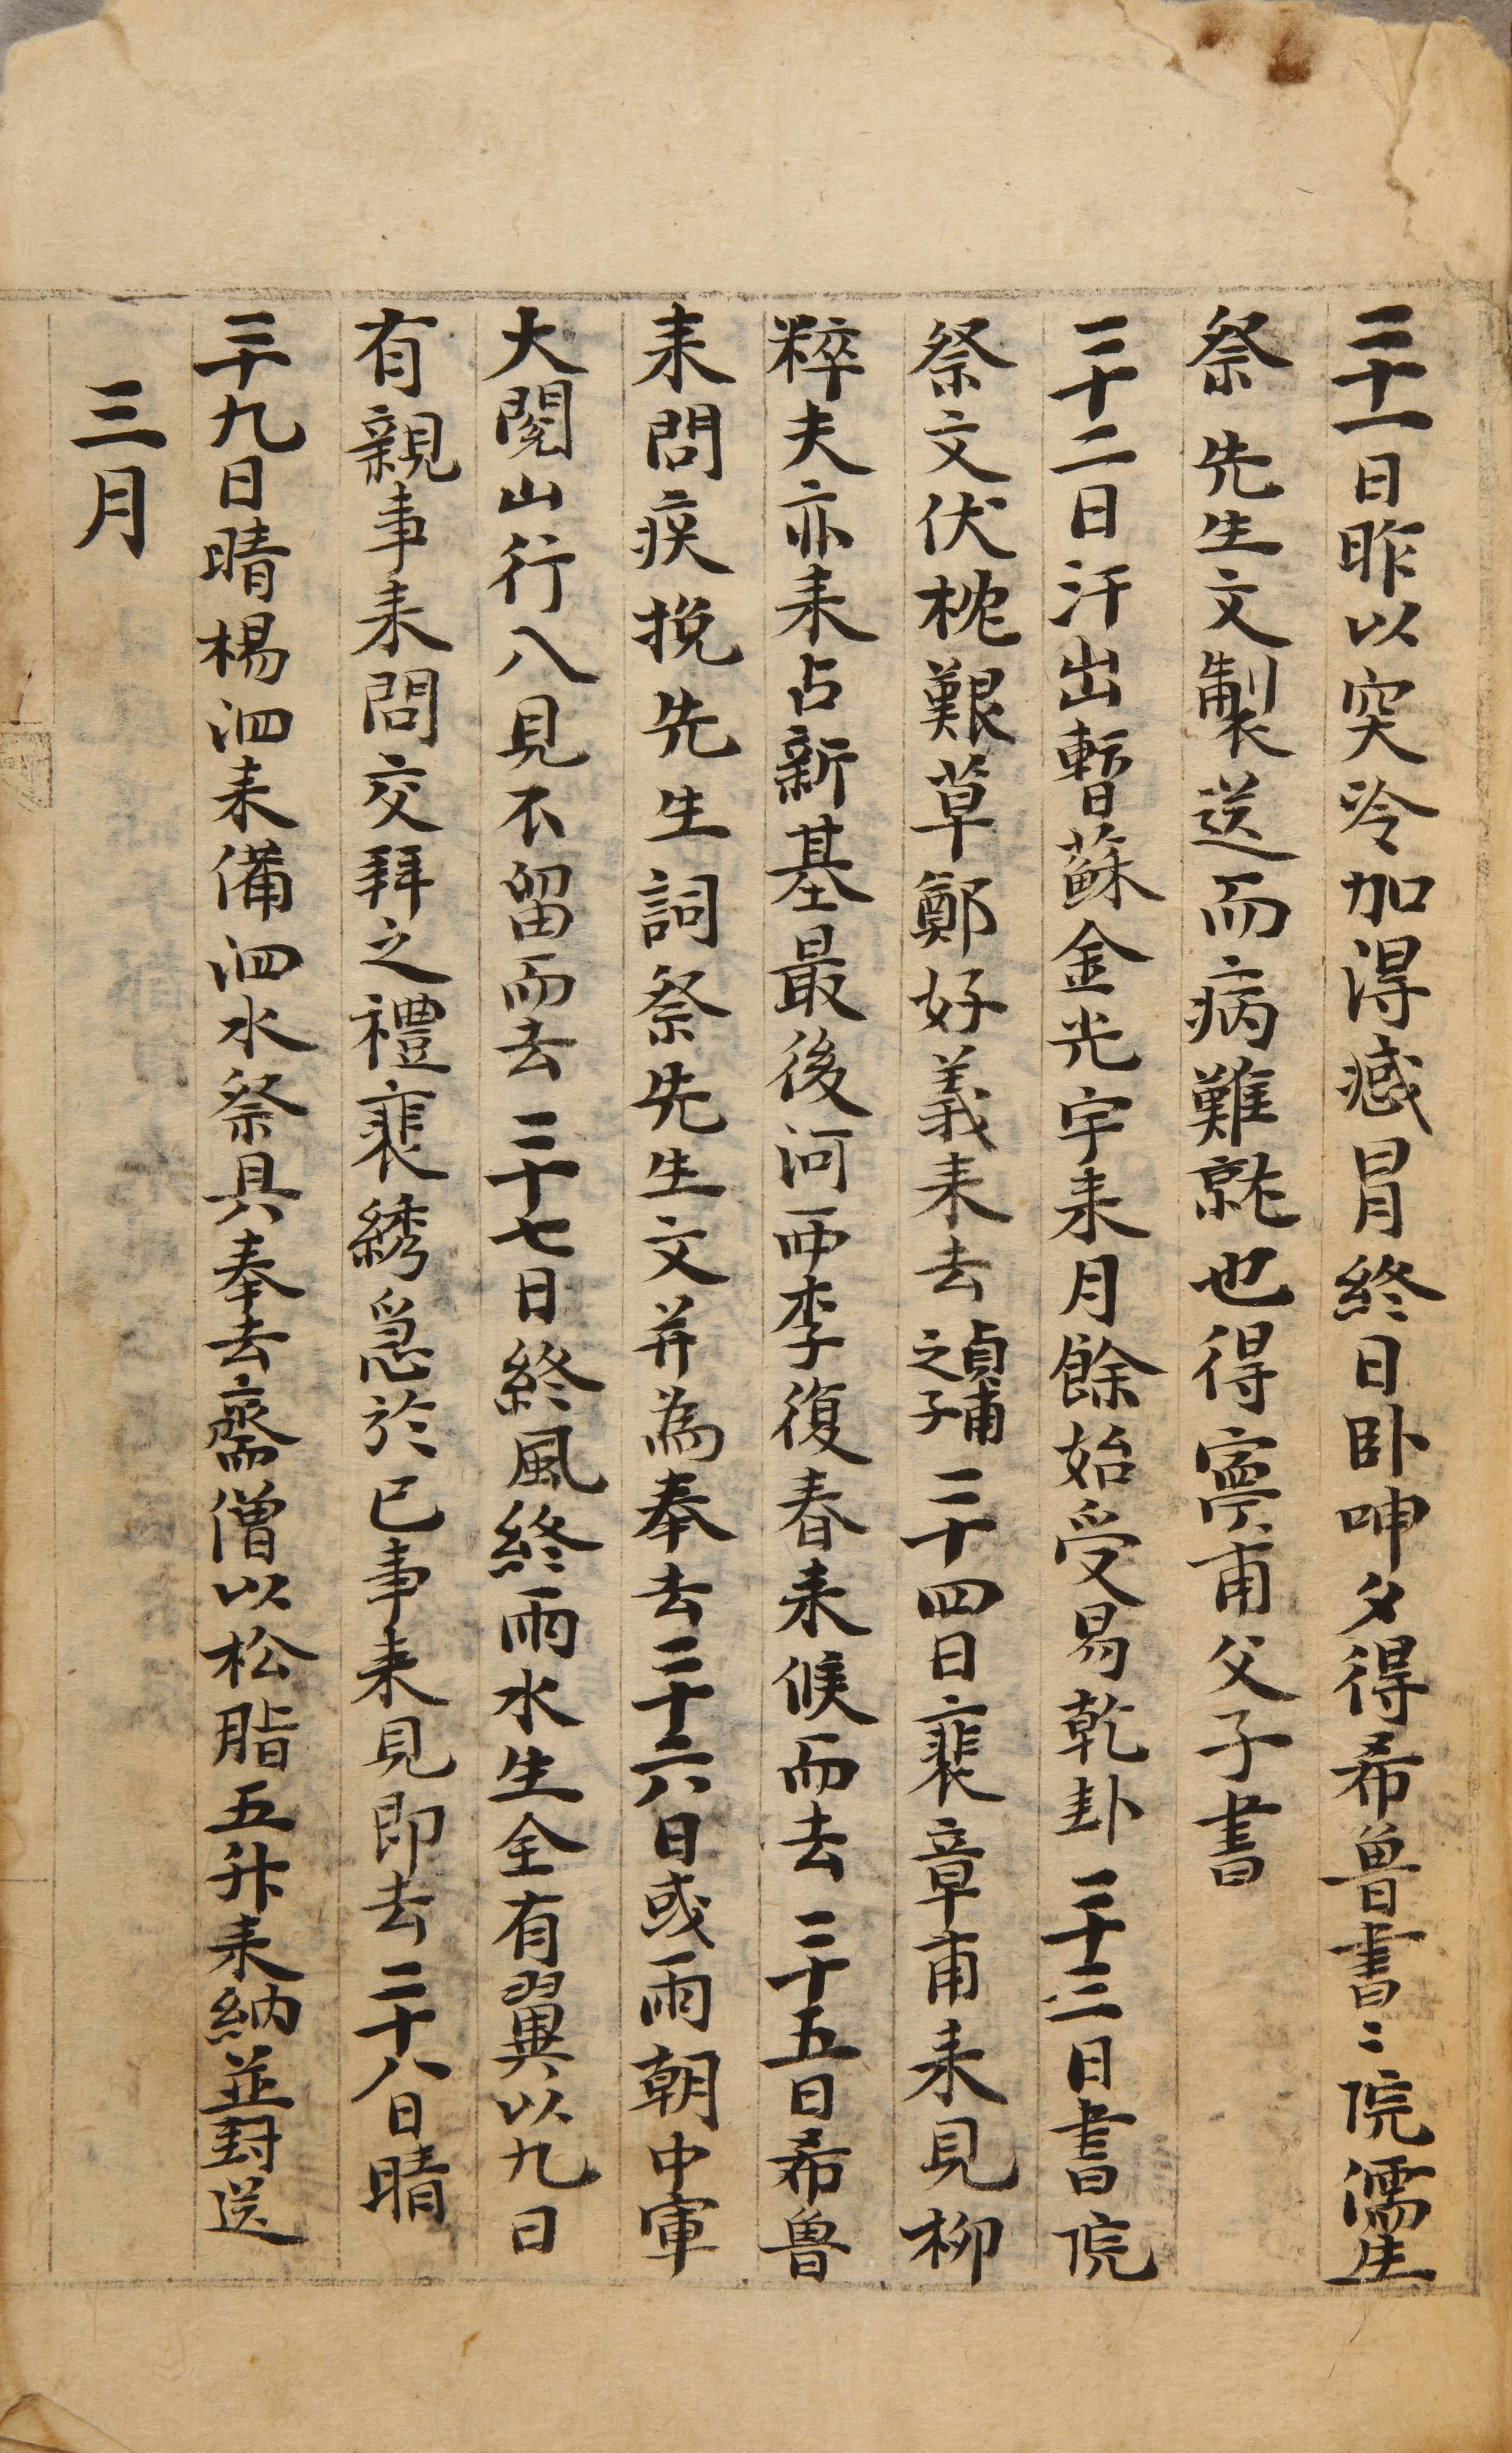 二十一日昨以突冷加得感冒終日臥呻夕得希魯書〻院儒生
祭先生文製送而病難就也得寧甫父子書
二十二日汗出暫蘇金光宇来月餘始受易乾卦二十三日書院
祭文伏枕艱草鄭好義来去禎甫之子二十四日裵章甫来見柳
粹夫亦来占新基最後河而李復春来候而去二十五日希魯
来問疾挽先生詞祭先生文并為奉去二十六日或雨朝中軍
大閱山行入見不留而去二十七日終風終雨水生全有翼以九日
有親事来問交拜之禮裵綉急於已事来見即去二十八日晴
二十九日晴楊泗来備泗水祭具奉去齋僧以松脂五升来納並封送
三月